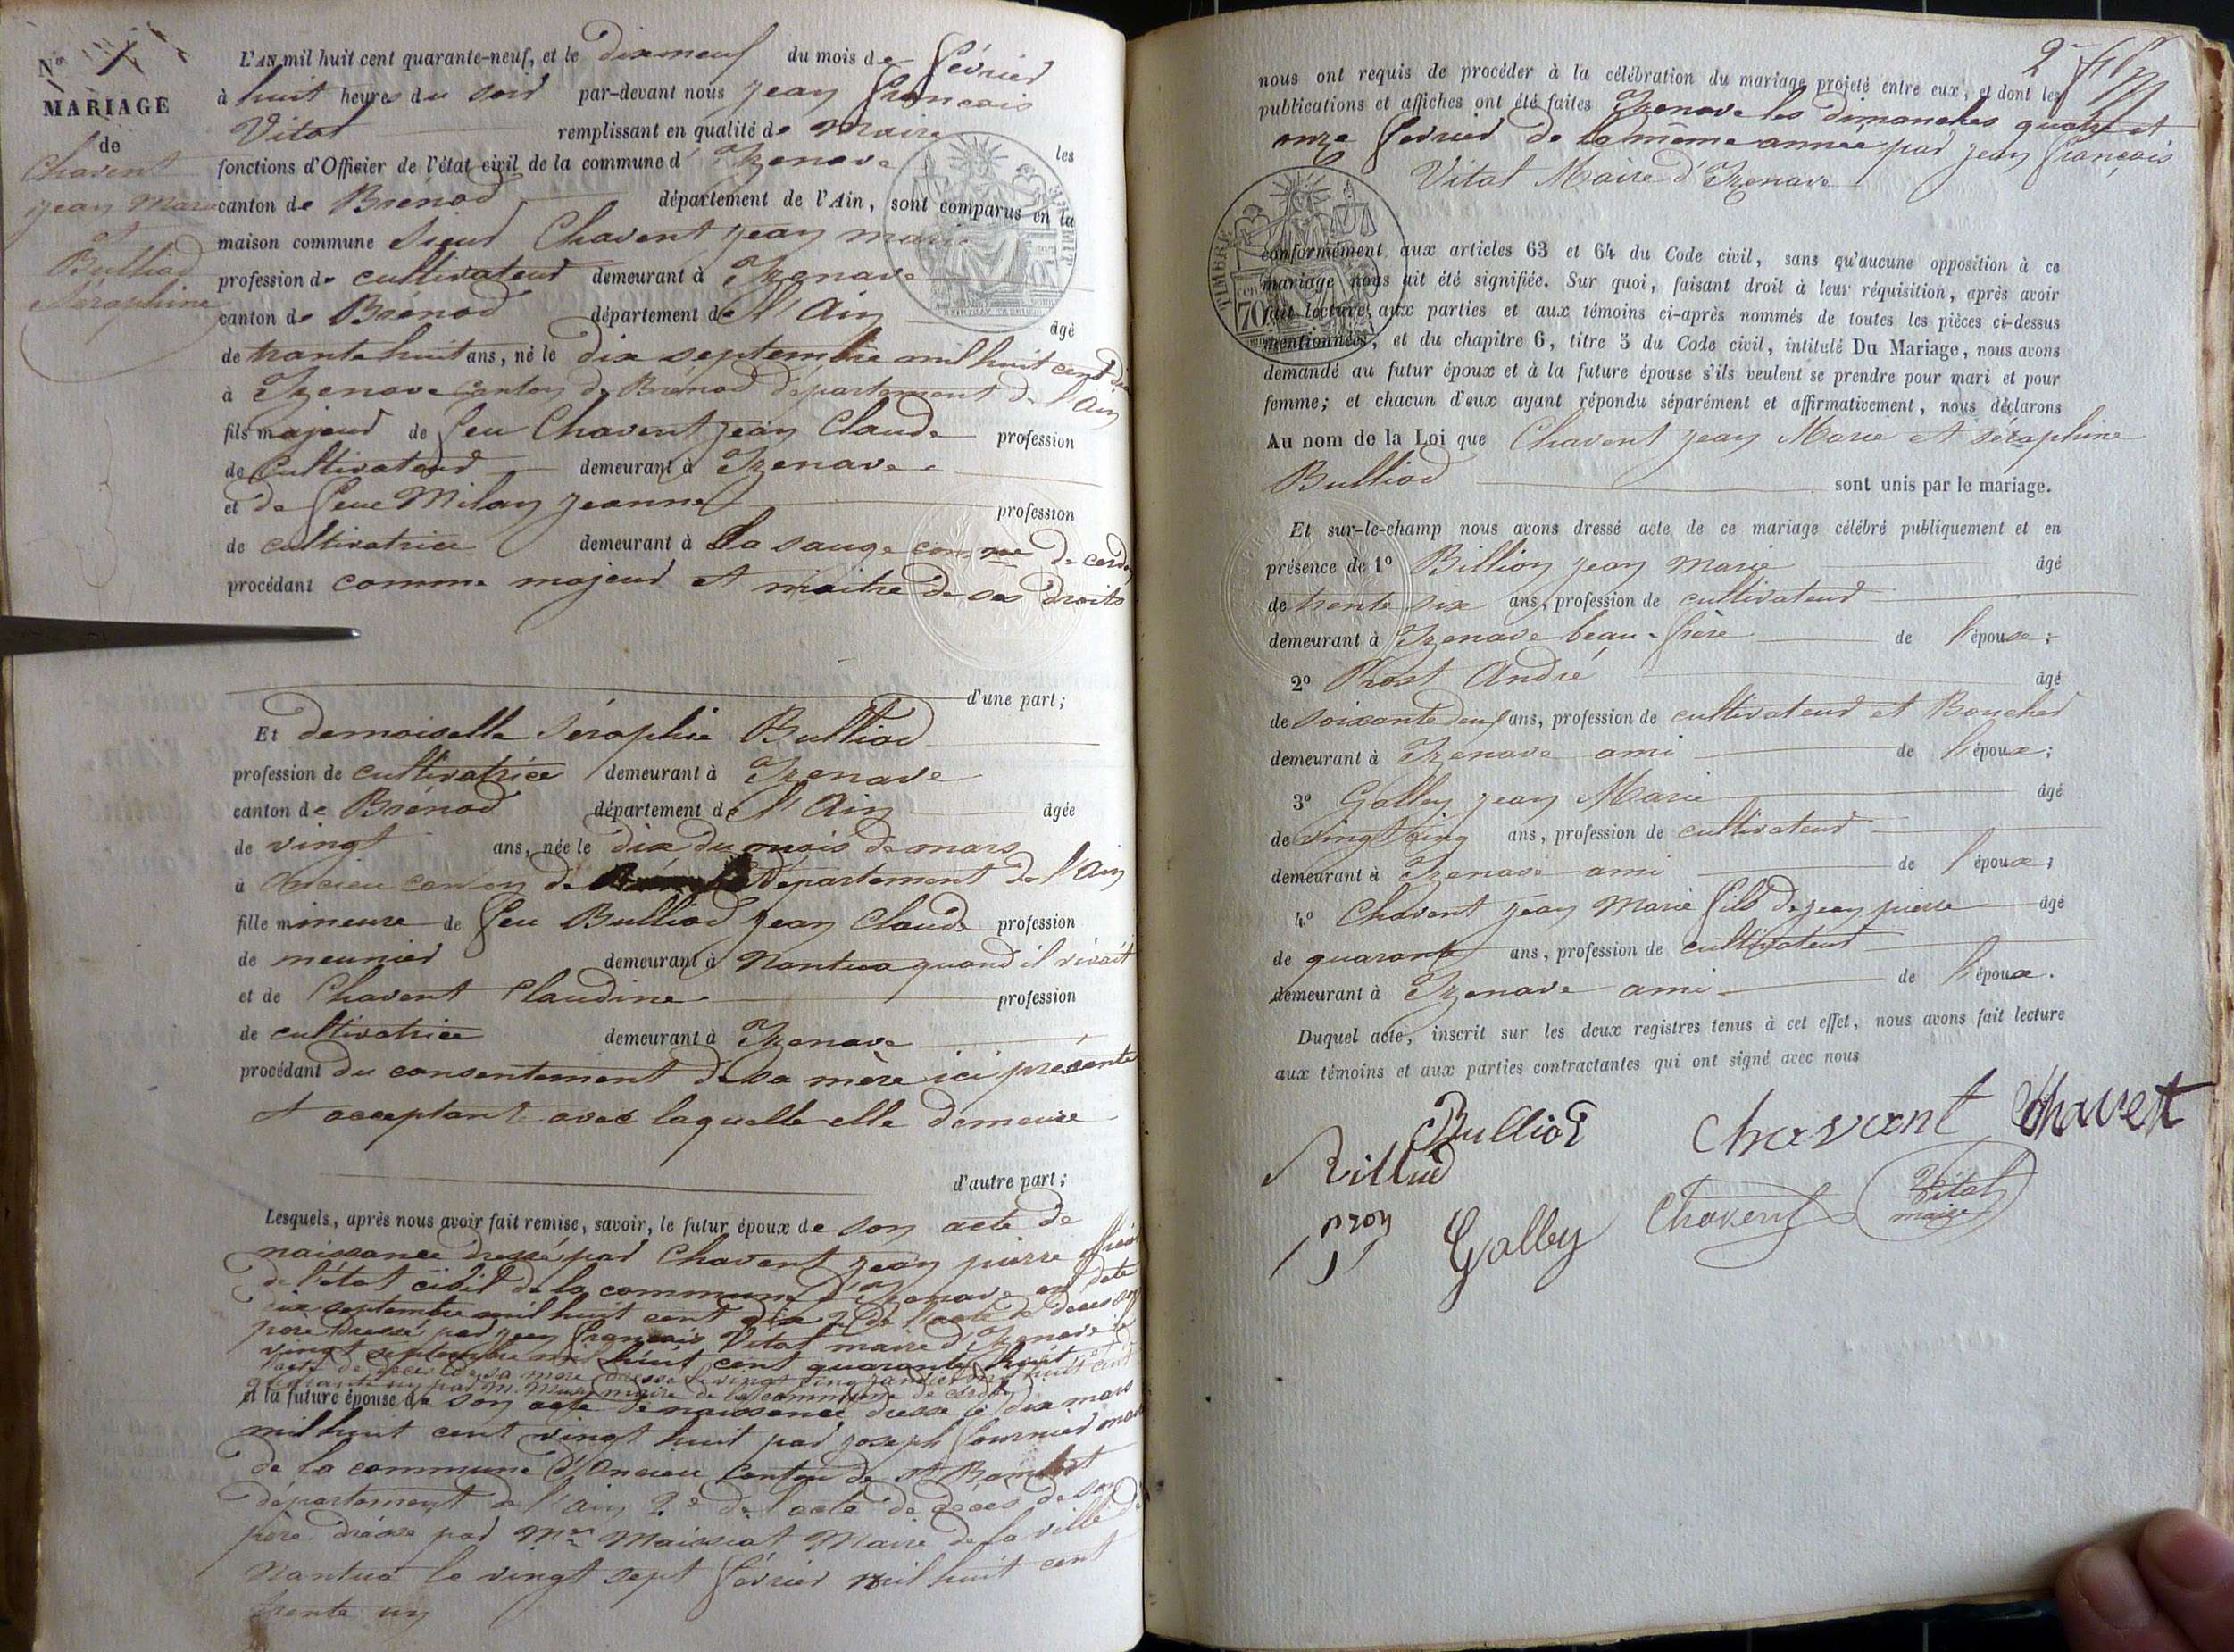 N° 1
MARIAGE
de
Chavent
jean Marie
et
Bulliod
Séraphine
L'AN mil huit cent quarante-neuf, et le dix neuf du mois de février
à huit heures du soir par-devant nous jean françois
Vital remplissant en qualité de maire les
fonctions d'Officier de l'état civil de la commune d' Izenave
canton de Brénod département de l'Ain, sont comparus en la
maison commune Sieur Chavent jean marie
profession de cultivateur demeurant à Izenave
canton de Brénod département de l'Ain âgé
de trente huit ans, né le dix septembre mil huit cent dix
à Izenave canton de Brénod département de l'Ain
fils majeur de feu Chavent jean Claude profession
de Cultivateur demeurant à Izenave
et de feue Milan jeanne profession
de cultivatrice demeurant à La sauge comme de cerdon
procédant comme majeur et maitre de ses droits
d'une part;
Et demoiselle Séraphie Bulliod
profession de cultivatrice demeurant à Izenave
canton de Brénod département de l'Ain âgée
de vingt ans, née le dix du mois de mars
à Oncieu canton de Département de l'Ain
fille mineure de feu Bulliod jean Claude profession
de meunier demeurant à Nantua quand il vivait
et de Chavent Claudine profession
de cultivatrice demeurant à Izenave
procédant du consentement de sa mère ici présente
et acceptant avec laquelle elle demeure
d'autre part;
Lesquels, après nous avoir fait remise, savoir, le futur époux de son acte de
naissance dressé par Chavent jean pierre officier
de l'état civil de la commune d'izenave en date
dix septembre mil huit cent dix 2° de l'acte de décès son
père dressé par jean françois Vital maire d'Izenave le
vingt septembre mil huit cent quarante huit
l'acte de décès de sa mère dressé le vingt cinq janvier mil huit cent
quarante un par M. maire de la commune de cerdon
et la future épouse de son acte de naissance dressé le dix mars
mil huit cent vingt huit par joseph fournier maire
de la commune d'Oncieu Canton de St Rambert
département de l'Ain 2° de l'acte de décès de son
père dressé par Mr Maissiat Maire de la ville de
Nantua le vingt sept février mil huit cent
trente un
2
nous ont requis de procéder à la célébration du mariage projeté entre eux, et dont les
publications et affiches ont été faites Izenave les dimanches quatre et
onze février de la même année par jean françois
Vital Maire d'Izenave
TIMBRE
70
conformément aux articles 63 et 64 du Code civil, sans qu'aucune opposition à ce
mariage nous ait été signifiée. Sur quoi, faisant droit à leur réquisition, après avoir
fait lecture aux parties et aux témoins ci-après nommés de toutes les pièces ci-dessus
mentionnées, et du chapitre 6, titre 5 du Code civil, intitulé Du Mariage, nous avons
demandé au futur époux et à la future épouse s'ils veulent se prendre pour mari et pour
femme; et chacun d'eux ayant répondu séparément et affirmativement, nous déclarons
Au nom de la Loi que Chavent jean Marie et séraphine
Bulliod sont unis par le mariage.
Et sur-le-champ nous avons dressé acte de ce mariage célébré publiquement et en
présence de 1° Billion jean marie âgé
de trente six ans, profession de cultivateur
demeurant à Izenave beau-frère de l'épouse;
2° Prost André âgé
de soixante deux ans, profession de cultivateur et Boucher
demeurant à Izenave ami de l'époux;
3° Golley jean Marie âgé
de vingt cinq ans, profession de cultivateur
demeurant à Izenave ami de l'époux;
4° Chavent jean Marie fils de jean pierre âgé
de quarante ans, profession de cultivateur
demeurant à Izenave ami de l'époux.
Duquel acte, inscrit sur les deux registres tenus à cet effet, nous avons fait lecture
aux témoins et aux parties contractantes qui ont signé avec nous
Bulliod Chavant Chavent
Golley Chavent Vital
maire